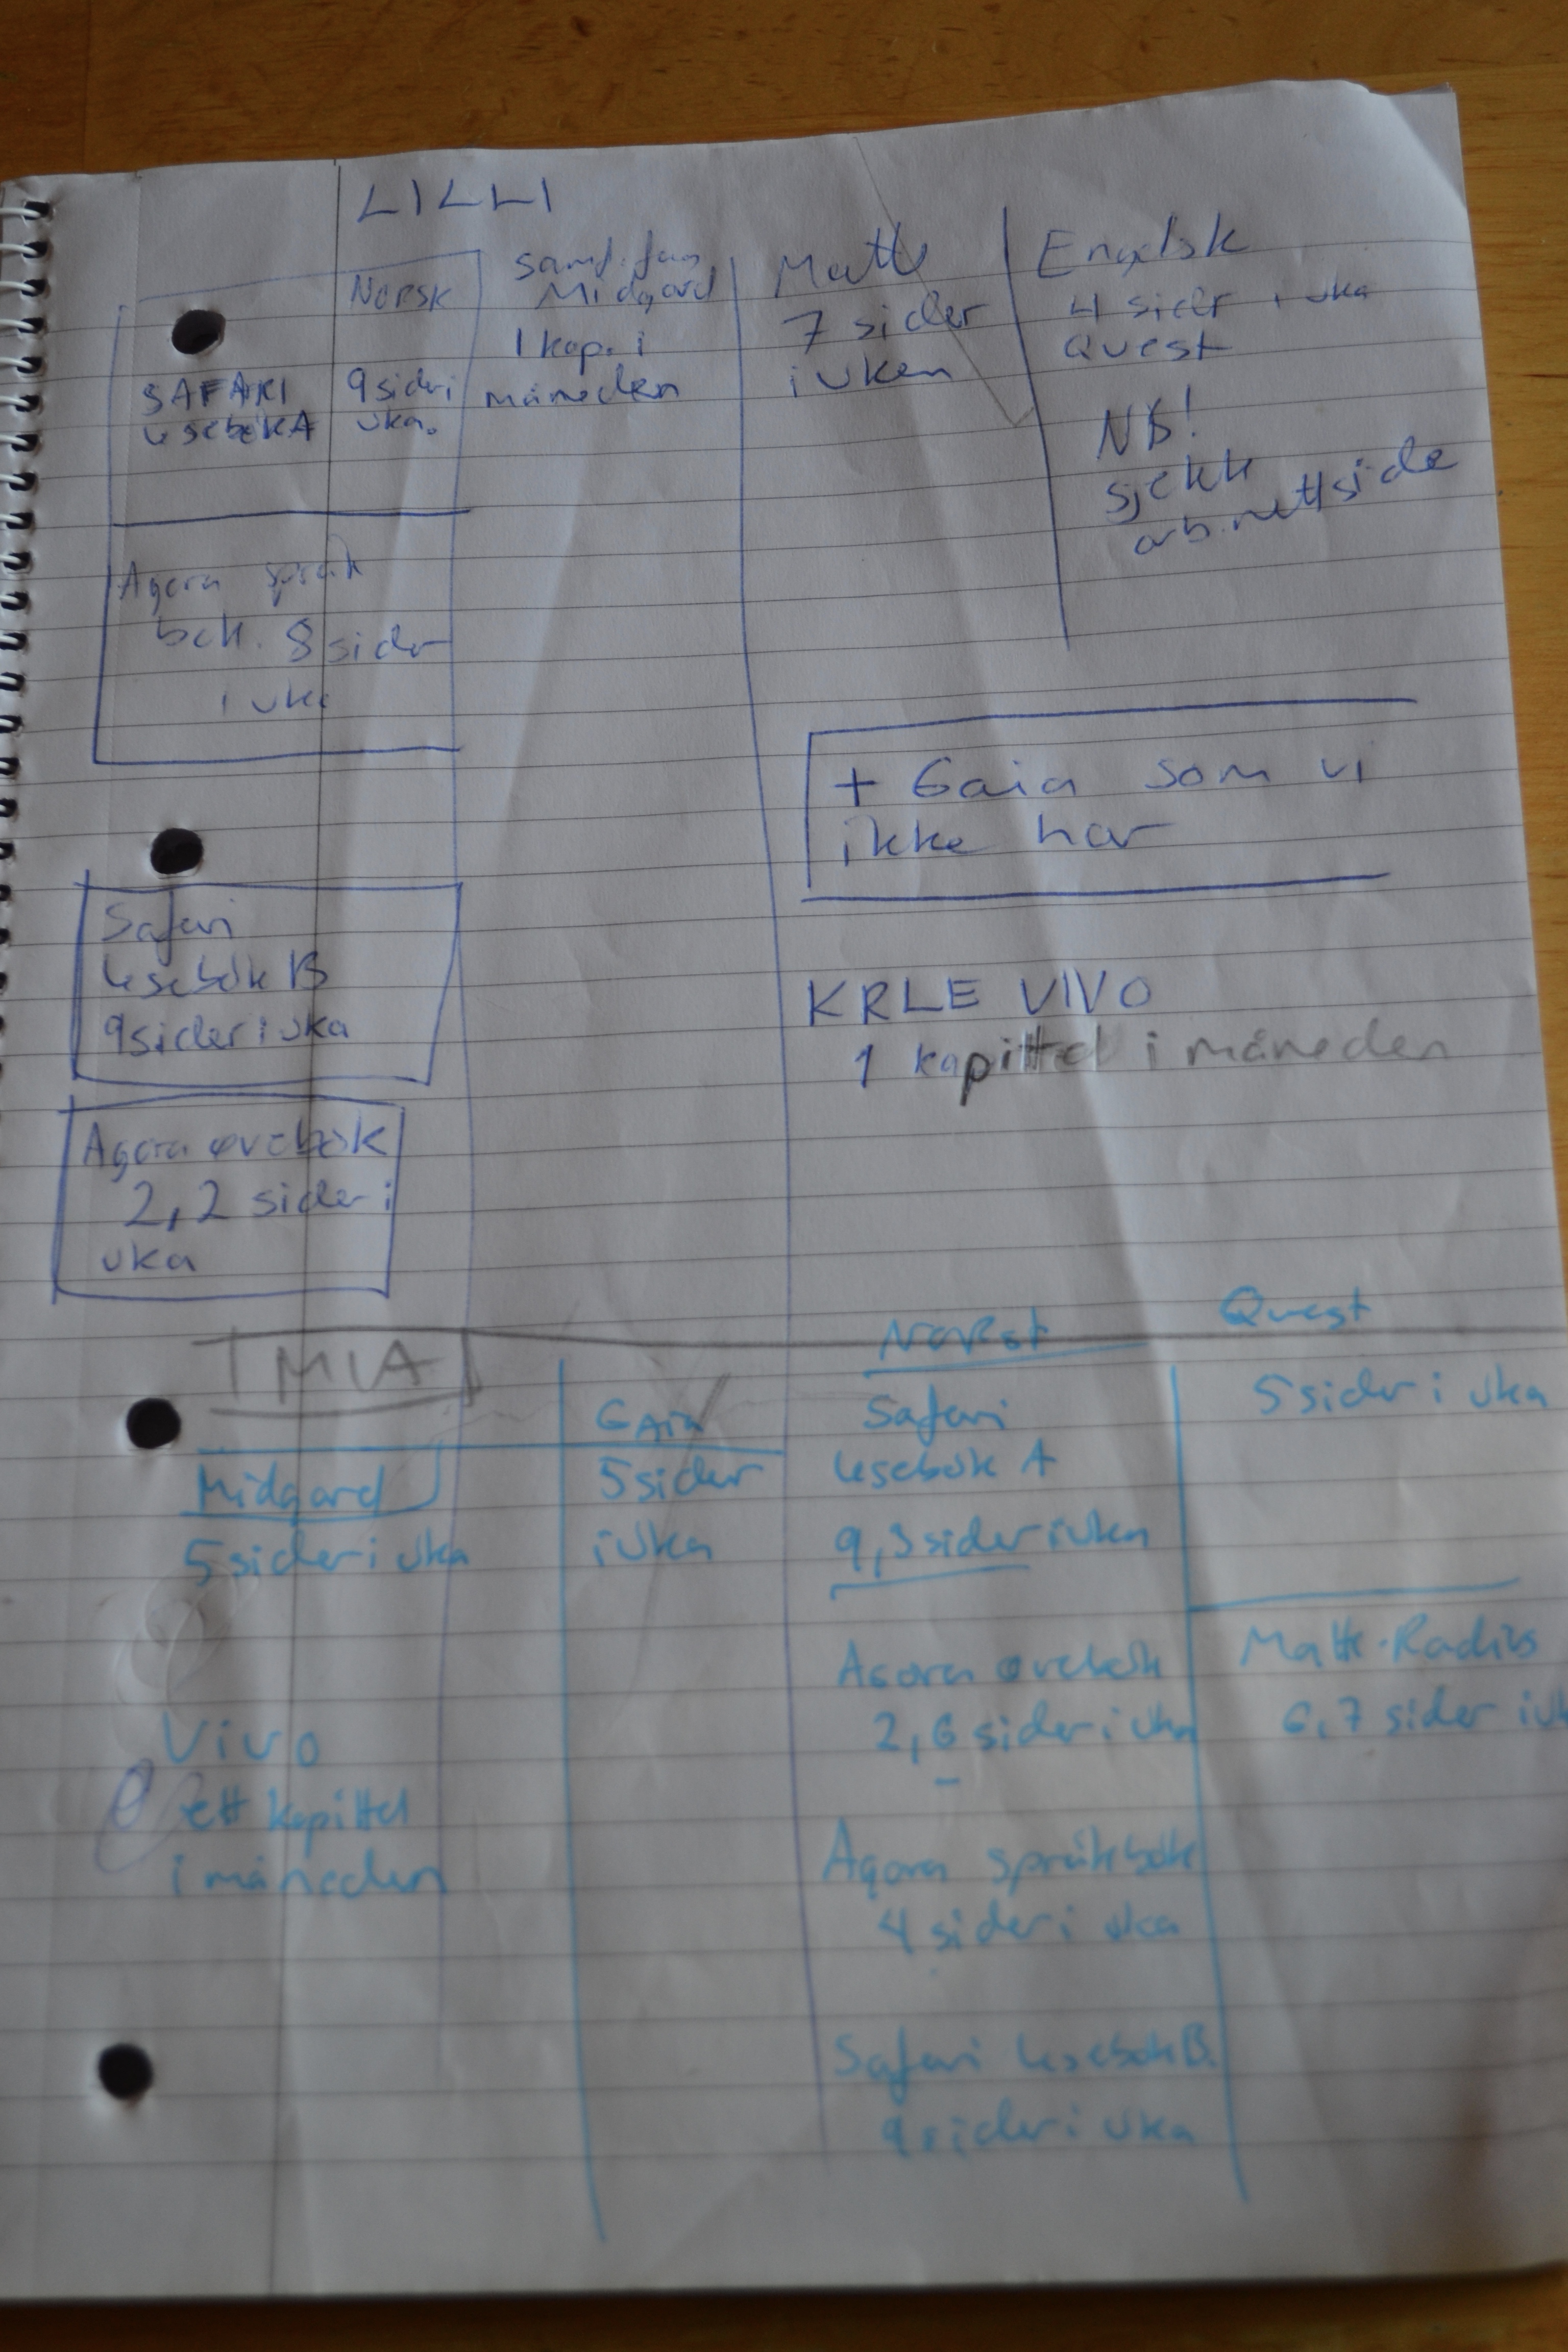 LILLI
Norsk
SAFARI
lesebok A
9 sider i
uka.
Agora språk
bok. 8 sider
i uka
Safari
lesebok B
9 sider i uka
Agora øvebok
2,2 sider i
uka
samf.fag
Midgard
1 kap. i
måneden
Matte
7 sider
i uken
Engelsk
4 sider i uka
Quest
NB!
sjekk
arb.nettside
+ Gaia som vi
ikke har
KRLE VIVO
1 kapittel i måneden
MIA
Midgard
5 sider i uka
Vivo
ett kapittel
i måneden
GAIA
5 sider
i uka
Norsk
Safari
lesebok A
9,3 sider i uka
Agora øvebok
2,6 sider i uka
Agora språkbok
4 sider i uka
Safari lesebok B.
9 sider i uka
Quest
5 sider i uka
Matte-Radius
6,7 sider i uk